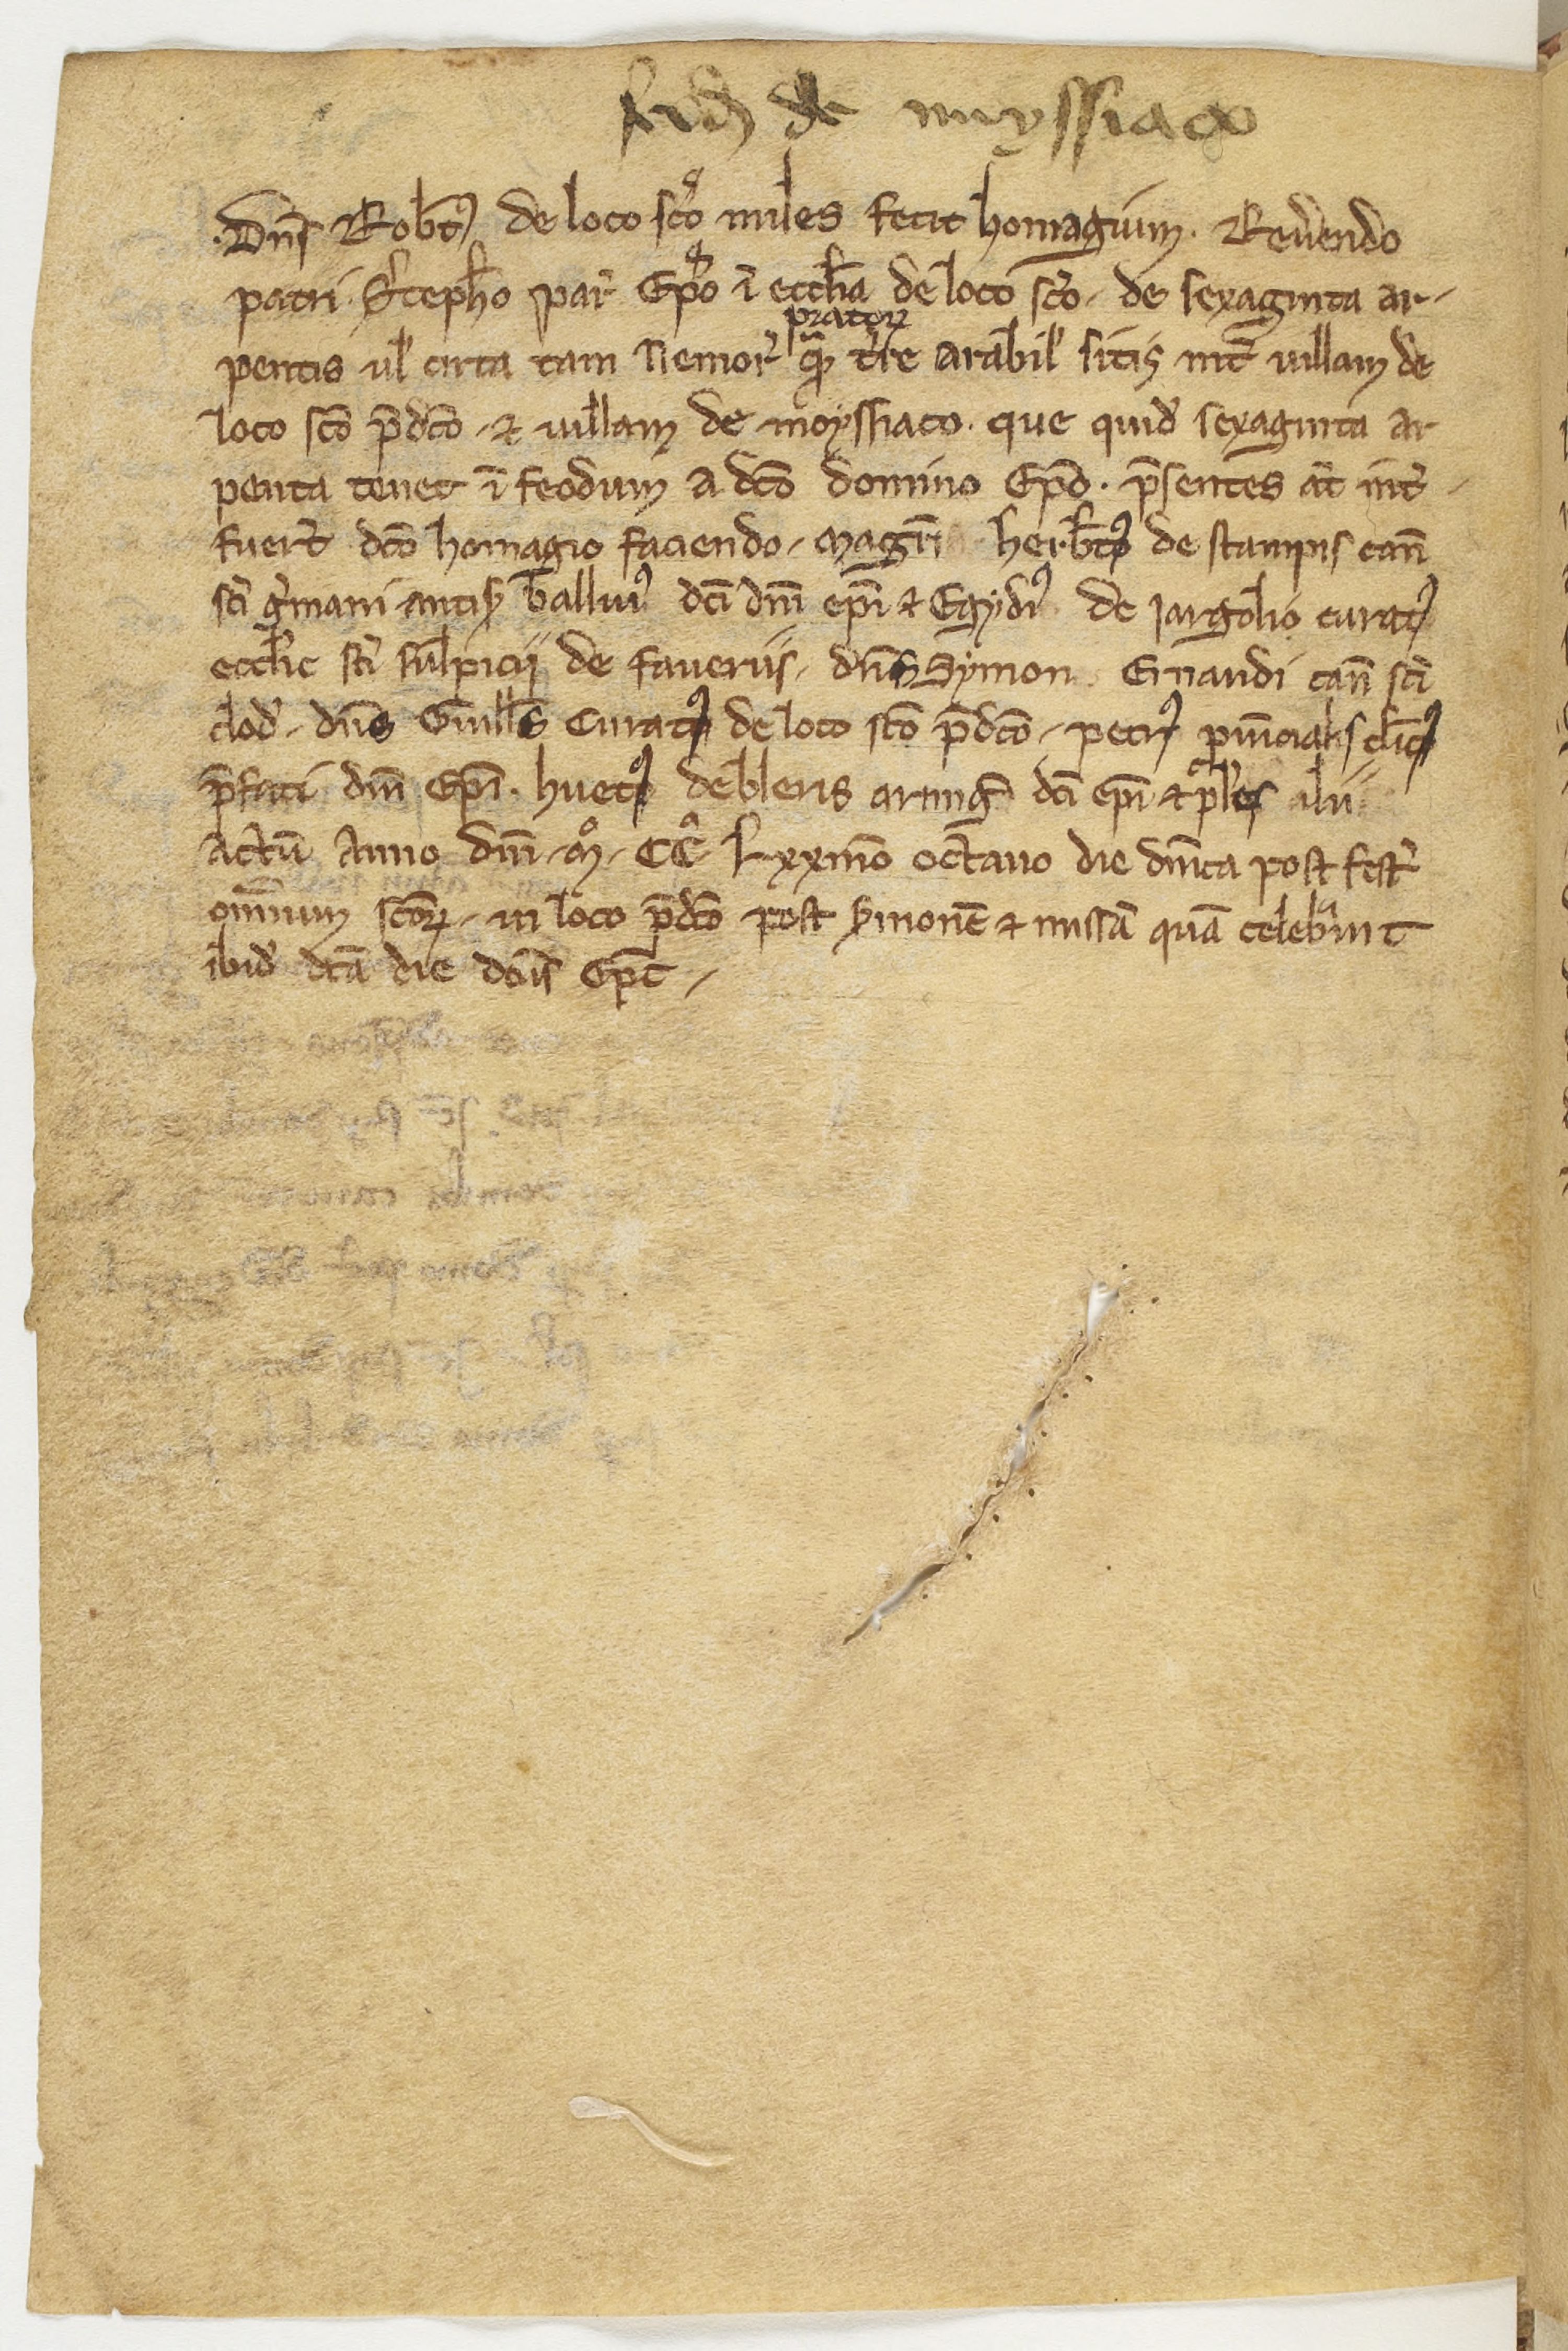 feod de muyssiaco
Dn̄s Rob̄tꝰ de loco sc̄o miles fecit homagium. Reu̾endo
patri. Stepho par̾ Ep̄o ī eccl̄ia de loco sc̄o. de sexaginta ar-
pentis ul̾ circa tam nemor̾ pratoꝝ qꝫ̄ tr̾re arabil̾ sitis int̾ uillam de
loco sc̄o p̄dc̄o. ⁊ uillam de moyssiaco. que quid̾ sexaginta ar
penta tenet ī feodum a dc̄o domino Ep̄o. p̄sentes āt int̾
fuer̄t dc̄o homagio faciendo. magr̄ herb̄tꝰ de stampis can̄
sc̄i g̾mani antis̾ balliuꝰ dc̄i dn̄i ep̄i ⁊ Egydiꝰ de jargolio curatꝰ
eccl̄ie sc̄i sulpicii de faueriis. dn̄s Symon Ernaudi can̄ sc̄i
clod̾. dn̄s Guill̄s Curatꝰ de loco sc̄o p̄dc̄o. petrꝰ ꝓuīcialis cl̄icꝰ
p̄fati dn̄i Ep̄i. huetꝰ de bleris armig̾ dc̄i ep̄i ⁊ pl̾es alii
actū Anno dn̄i. mͦ. CCͦ Lxxmo octauo die dn̄ica post fest̾
omnium sc̄oꝝ. in loco p̄dc̄o post s̾monē ⁊ missā quā celebᵃuit
ibid̾ dc̄ā die dōis Ep̄c.